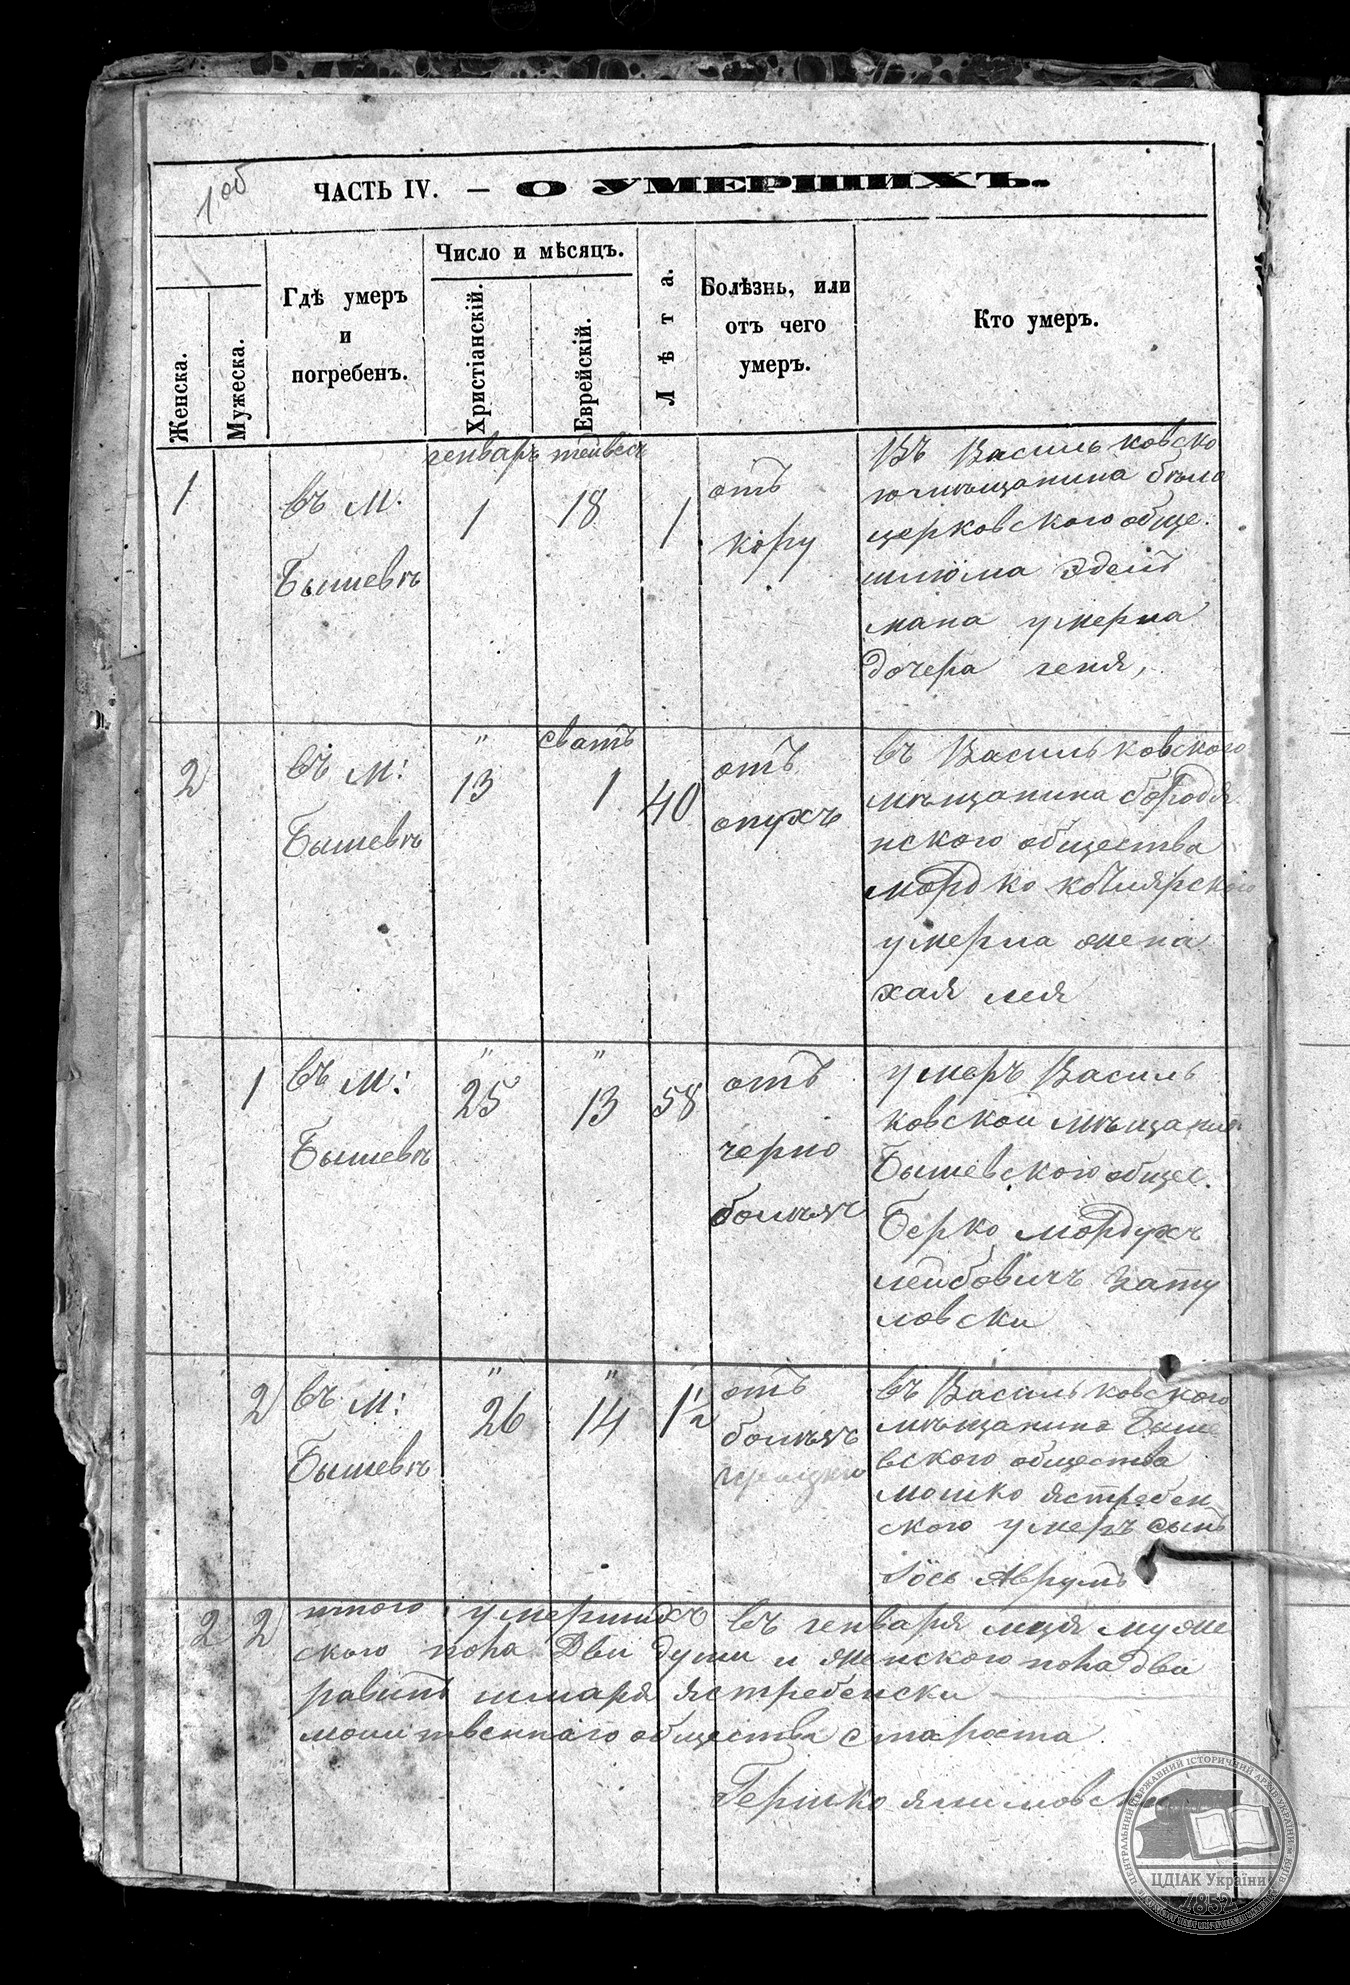 1 об
ЧАСТЬ IV. — О УМЕРШИХЪ.
Женска.
Мужеска.
Гдѣ умеръ
и
погребенъ.
Число и мѣсяцъ.
Христіанскій.
Еврейскій.
Лѣта.
Болѣзнь, или
отъ чего
умеръ.
Кто умеръ.
генваръ
1
въ м.
Бышевѣ
1
18
1
отъ
кору
Въ Васильковско
го мѣщанина бѣло
церковского обще.
шлюма Эдель
мана умерла
дочера геня,
2
въ м:
Бышевѣ
"
13
сватъ
1
40
отъ
опухъ
въ Васильковского
мѣщанина бородя
нского общества
мордко котлярского
умерла жена
хая лея
1
въ м:
Бышевѣ
"
25
"
13
58
отъ
черно
болѣзъ
умеръ Василь
ковской мѣщанинъ
Бышевского общес.
Берко мордухъ
лейбовичъ Зату
ловски
2
въ м:
Бышевѣ
"
26
"
14
1 1/2
отъ
болѣзъ
въ Васильковского
мѣщанина Быше
вского общества
мошко ястребен
ского умеръ сынъ
Іось Аврумъ
2 2
итого умершихъ въ генваря мѣсця муже
ского пола Два души и женского пола два
равинъ шмаря ястребенски
молитвеннаго общества староста
Гершко
ЦЕНТРАЛЬНИЙ ДЕРЖАВНИЙ ІСТОРИЧНИЙ АРХІВ УКРАЇНИ м. КИЇВ
ЦДІАК України
1852